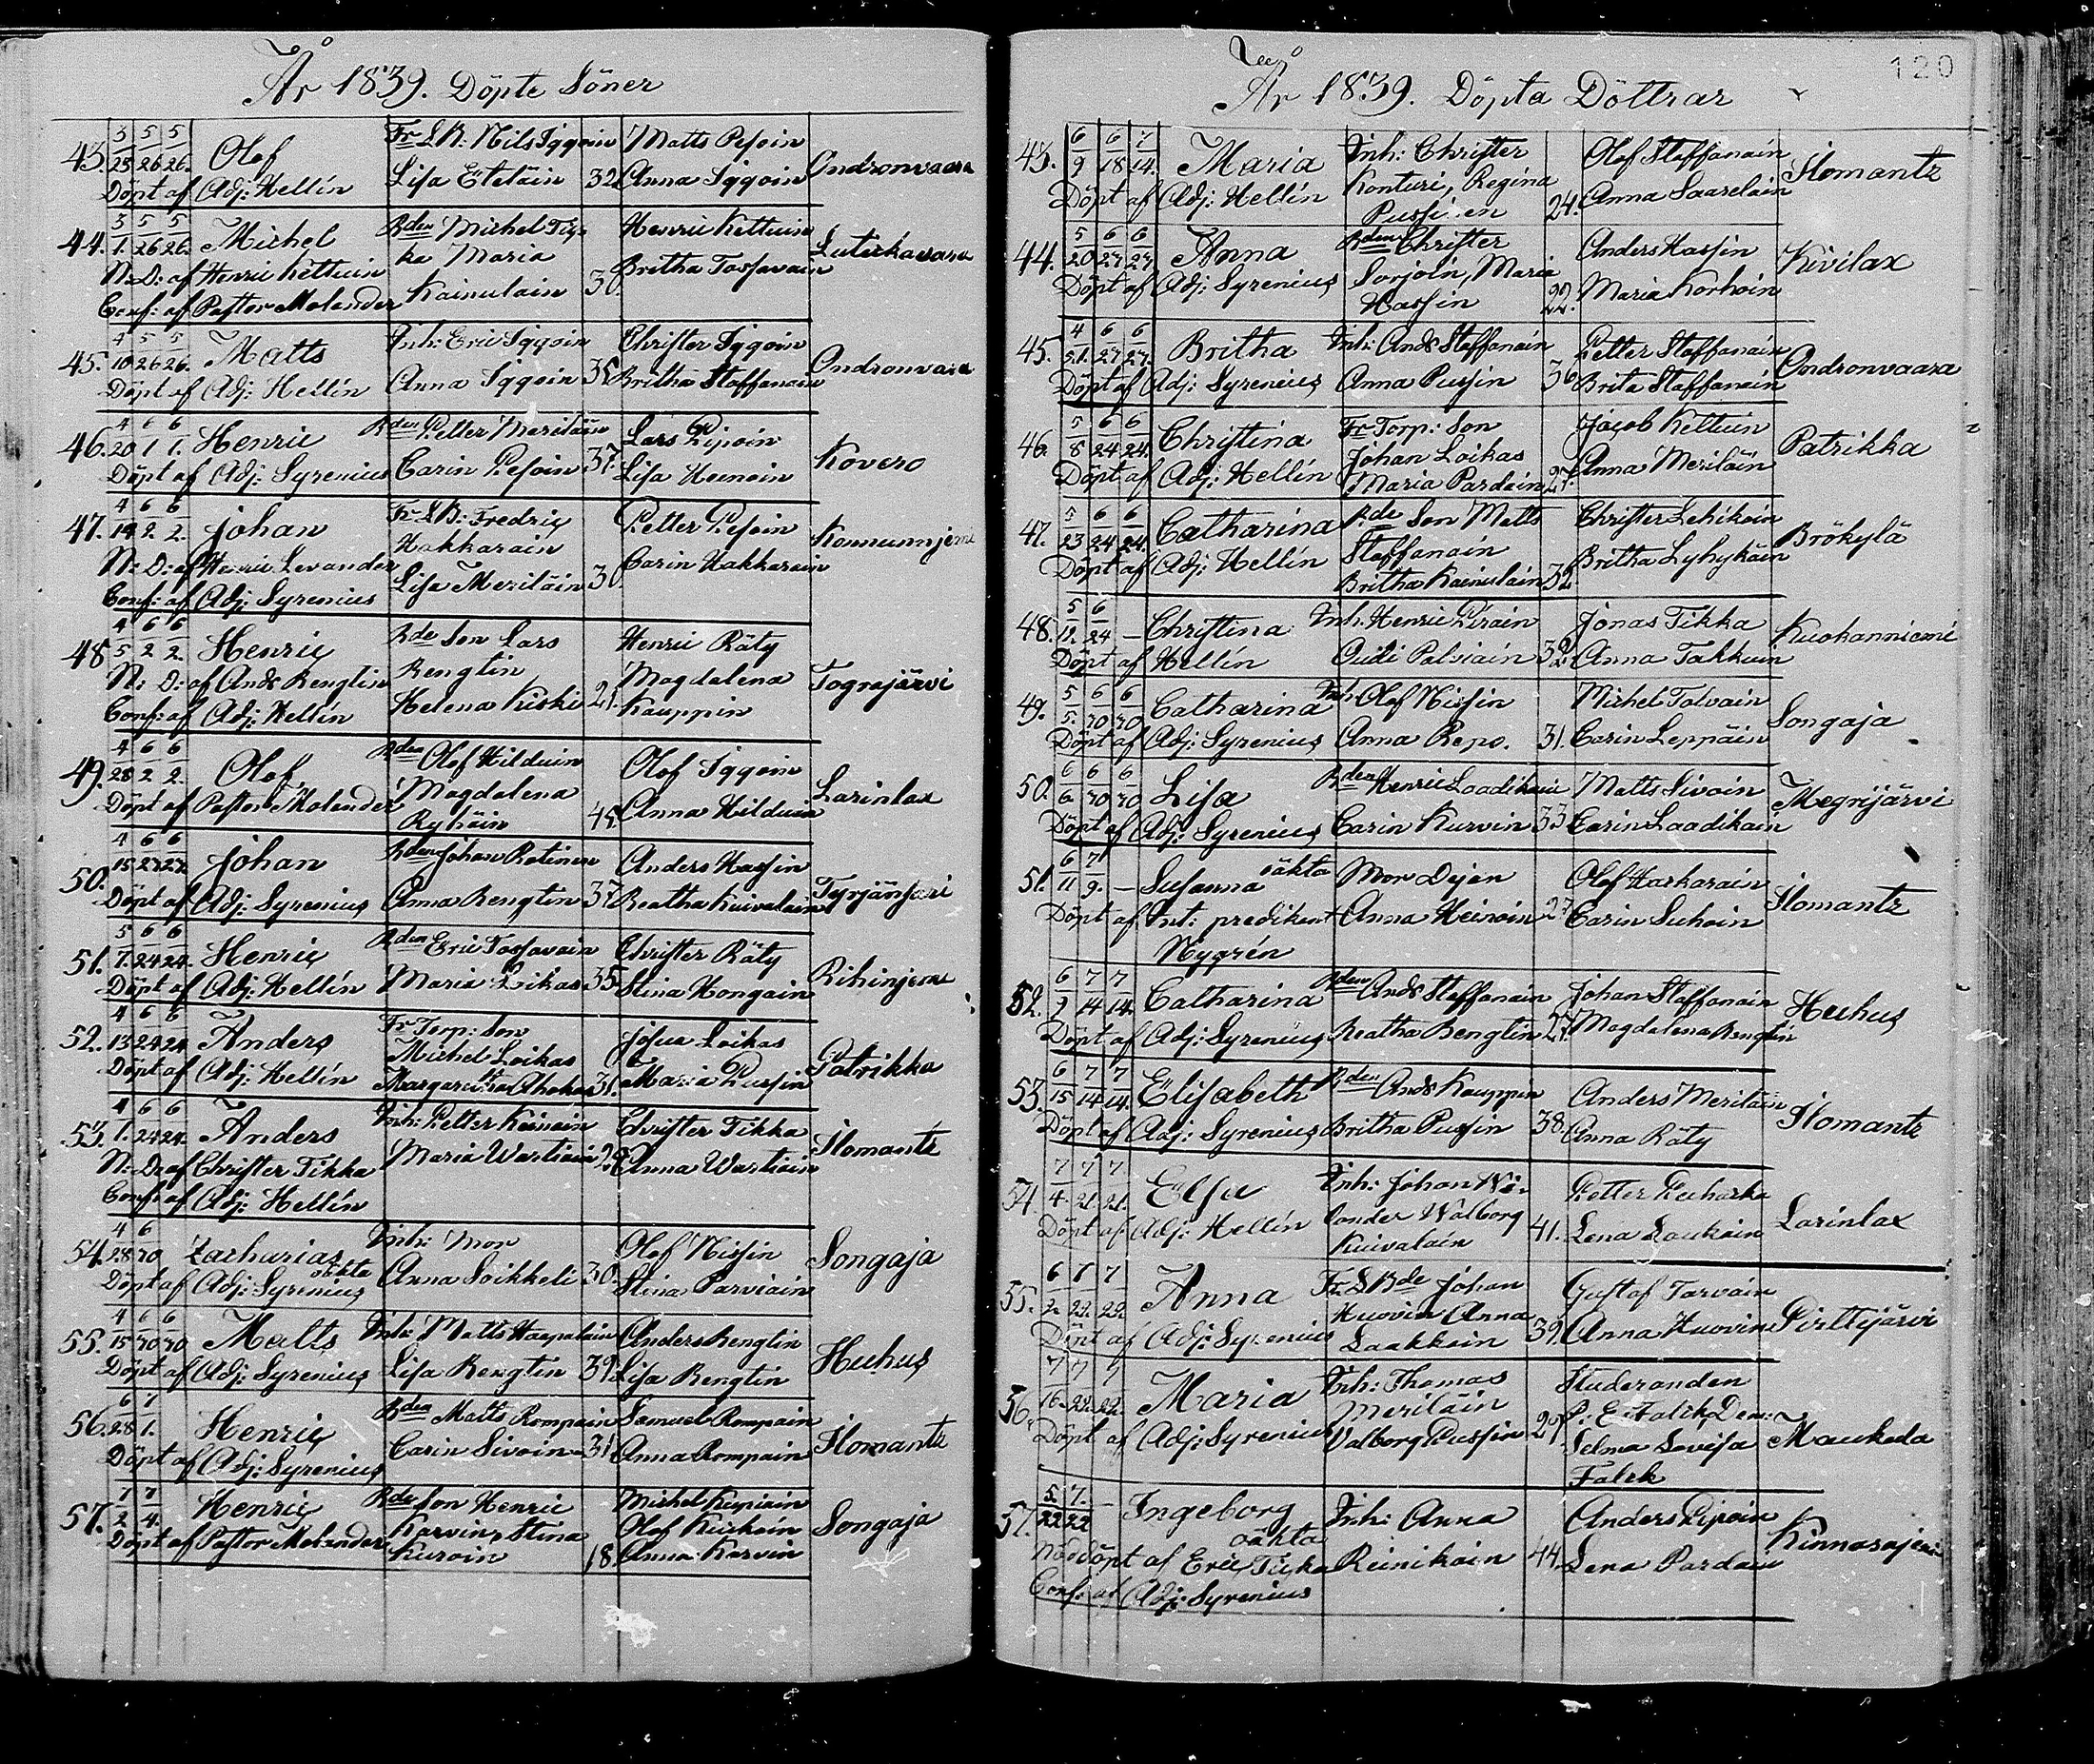 År 1839. Döpte Söner
43. 3/25 5/26 5/26. Olof Fr LB: Nils Iggoin Matts Pesoin Ondronvaara
Döpt af Adj: Hellín Lisa Eteläin 32 Anna Iggoin
44. 3/1. 5/26 5/26. Michel Bden Michel Tis- Henric Kettuin
N: D: af Henric Kettuin ka Maria Britha Tossavain
Conf: af Pastor Molander Kainulain 30.
45. 4/10 5/26 5/26. Matts Inh: Eric Iggoin Christer Iggoin Ondronvaara
Döpt af Adj: Hellín Anna Iggoin 35. Britha Staffanain
46. 4/20 6/1 6/1. Henric Bden Petter Meriläin Lars Piipoin Kovero
Döpt af Adj: Syrenius Carin Pesoin 37. Lisa
47. 4/14 6/2 6/2. Johan Fr LB: Fredric Petter Pesoin
N: D: af Henric Levander Hakkarain Carin Hakkarain
Conf: af Adj: Syrenius Lisa Meriläin 30.
48 4/5 6/2 6/2. Henric Bde Son Lars Henric Räty
N: D: af Ands Renglin Renglin Magdalena
Conf: af Adj: Hellín Helena Kiiski 21. Kauppin
49. 4/28 6/2 6/2. Olof Bden Olof Hilduin Olof Iggoin Larinlax
Döpt af Pastor Molander Magdalena Anna Hilduin
45.
50. 4/15 6/27 6/27 Johan Bden Johan Rotinen Anders Hassin
Döpt af Adj: Syrenius Anna Renglin 37. Beatha Kuivalain
51. 5/7. 6/24 6/24. Henric Bden Eric Tossavain Christer Räty
Döpt af Adj: Hellín Maria 35. Stina Hongain
52. 4/13 6/24 6/24. Anders Fr Torp: Son Josua Loikas Patrikka
Döpt af Adj: Hellín Michel Loikas Maria Pussin
31.
53. 4/1. 6/24 6/24. Anders Inh: Petter Christer Tikka Ilomants
N: D: af Christer Tikka Maria Wartiain Anna Wartiain
Conf: af Adj: Hellín
54. 4/28 6/30 Zacharias Inh: Mon Olof Nissin Songaja
oäkta
Döpt af Adj: Syrenius Anna Soikkeli 30. Stina Parviain
55. 4/15 6/30 6/30 Matts Inh: Matts Haapalain Anders Renglin Huhus
Döpt af Adj: Syrenius Lisa Renglin 39. Lisa Renglin
56. 6/28 7/1. Henric Bden Matts Rompain Samuel Rompain Ilomants
Döpt af Adj: Syrenius Carin Sivoin 31 Anna Rompain
57. 7/2 7/4. Henric Bde Son Henric Michel Kupiain Songaja
Döpt af Pastor Molander Karvin, Stina Olof
18. Anna Karvin
120
År 1839. Döpta Döttrar
43. 6/9 6/18 7/14. Maria Inh: Christer Olof Staffanain Ilomants
Döpt af Adj: Hellín Konturi, Regina Anna Saarelain
Pussinen 24.
44. 5/20 6/27 6/27. Anna Bden Christer Anders Hassin Kivilax
Döpt af Adj: Syrenius Sorjoin, Maria Maria Korhoin
Hassin 22.
45. 4/ 6/27 6/27. Britha Inh: Ands Staffanain Petter Staffanain Ondronvaara
Döpt af Adj: Syrenius Anna Pussin 36 Brita Staffanain
46. 5/8 6/24 6/24. Christina Fr Torp: Son Jacob Kettuin Patrikka
Döpt af Adj: Hellín Johan Loikas Anna Meriläin
Maria Pardain 27.
47. 5/23 6/24 6/24. Catharina Bde Son Matts Christer Lehikoin Brökylä
Döpt af Adj: Hellín Staffanain Britha Lyhykäin
Britha Kainulain 32
48. 5/12. 6/24 – Christina Inh: Henric Piirain Jonas Tikka Kuohanniemi
Döpt af Hellín Palviain 32. Anna Takkuin
49. 5/5. 6/30 6/30 Catharina Inh: Olof Nissin Michel Tolvain Songaja
Döpt af Adj: Syrenius Anna Repo. 31. Carin Leppäin
50. 6/6. 6/30 6/30 Lisa Bden Henric Laadikain Matts Sivoin Megrijärvi
Döpt af Adj: Syrenius Carin Kurvin 33 Carin Laadikain
51. 6/11 7/9. – Susanna oäkta Mon Dejan Olof Harkarain Ilomants
Döpt af Int: predikant Anna Heinoin 27 Carin Suhoin
Nygrén
52. 6/9 7/14 7/14. Catharina Bden Ands Staffanain Johan Staffanain Huhus
Döpt af Adj: Syrenius Beatha Renglin 27. Magdalena Renglin
53. 6/15 7/14 7/14. Elisabeth Bden Ands Kauppin Anders Meriläin Ilomants
Döpt af Adj: Syrenius Britha Pussin 38. Anna Räty
54. 7/4. 7/21. 7/21. Elsa Inh: Johan We- Petter Puharka Larinlax
Döpt af Adj: Hellín lander Walborg Lena Laukain
Kuivalain 41.
55. 6/2. 7/22. 7/22 Anna Fr. L Bde Johan Gustaf Tarvain Pirttijärvi
Döpt af Adj: Syrenius Huovin Anna Anna Huovin
Laakkoin 39.
56. 7/16. 7/22. 7/22. Maria Inh: Thomas Studeranden Maukola
Döpt af Adj: Syrenius Meriläin
Valborg Pussin 27. Selma Lovisa
Falck
57. 5/22 7/22 – Ingeborg Inh: Anna Anders Piipoin
oäkta
Nöddöpt af Eric Tiiska Reinikain 44. Lena Pardain
Conf: af Adj: Syrenius